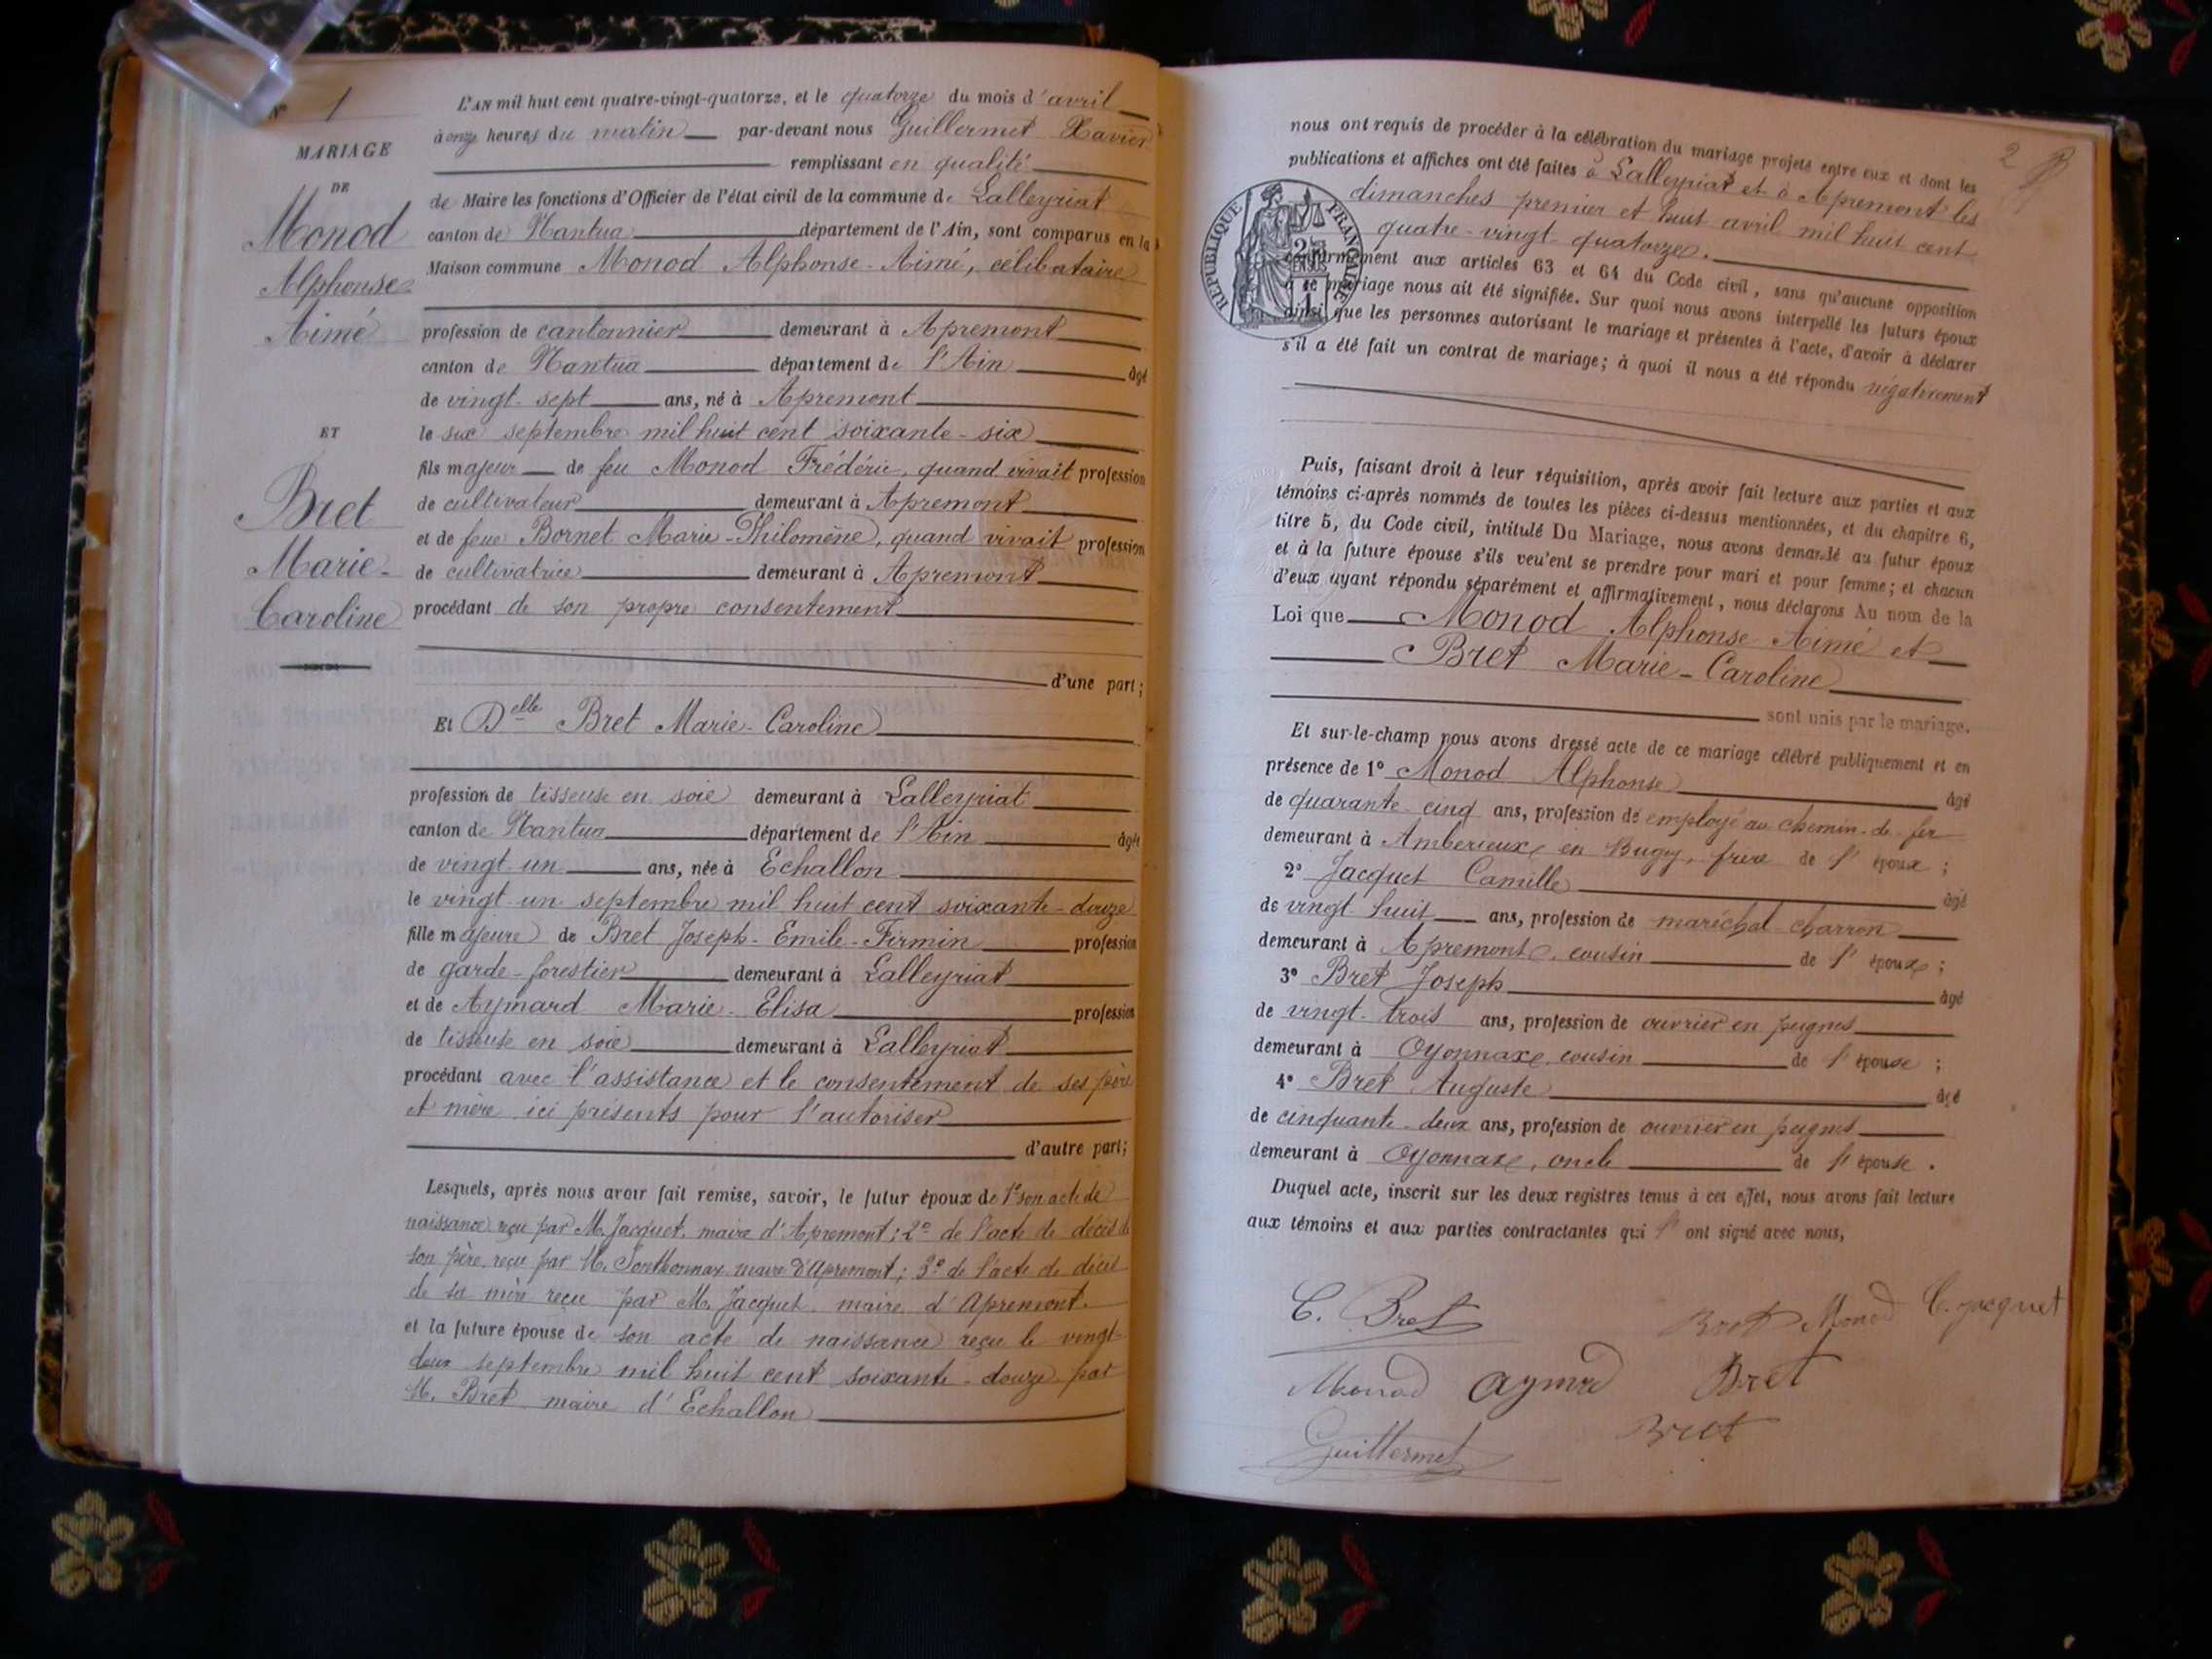 N° 1
MARIAGE
DE
Monod
Alphonse
Aimé
ET
Bret
Marie-
Caroline
L'AN mil huit cent quatre-vingt-quatorze, et le quatorze du mois d'avril
à onze heures du matin par-devant nous Guillermet Xavier
remplissant en qualité
de Maire les fonctions d'Officier de l'état civil de la commune de Lalleyriat
canton de Nantua département de l'Ain, sont comparus en la
Maison commune Monod Alphonse-Aimé, célibataire
profession de cantonnier demeurant à Apremont
canton de Nantua département de l'Ain âgé
de vingt-sept ans, né à Apremont
le six septembre mil huit cent soixante-six
fils majeur de feu Monod Frédéric, quand vivait profession
de cultivateur demeurant à Apremont
et de feue Bornet Marie-Philomène, quand vivait profession
de cultivatrice demeurant à Apremont
procédant de son propre consentement
d'une part;
Et Delle Bret Marie-Caroline
profession de tisseuse en soie demeurant à Lalleyriat
canton de Nantua département de l'Ain âgée
de vingt-un ans, née à Echallon
le vingt-un septembre mil huit cent soixante-douze
fille majeure de Bret Joseph-Emile-Firmin profession
de garde-forestier demeurant à Lalleyriat
et de Aymard Marie-Elisa profession
de tisseuse en soie demeurant à Lalleyriat
procédant avec l'assistance et le consentement de ses père
et mère ici présents pour l'autoriser
d'autre part;
Lesquels, après nous avoir fait remise, savoir, le futur époux de 1° son acte de
naissance reçu par M. Jacquet, maire d'Apremont; 2° de l'acte de décès de
son père reçu par M. maire d'Apremont; 3° de l'acte de décès
de sa mère reçu par M. Jacquet maire d'Apremont.
et la future épouse de son acte de naissance reçu le vingt-
deux septembre mil huit cent soixante-douze par
M. Bret maire d'Echallon
2
nous ont requis de procéder à la célébration du mariage projeté entre eux et dont les
publications et affiches ont été faites à Lalleyriat et à Apremont les
dimanches premier et huit avril mil huit cent
quatre-vingt-quatorze.
conformément aux articles 63 et 64 du Code civil, sans qu'aucune opposition
à ce mariage nous ait été signifiée. Sur quoi nous avons interpellé les futurs époux
ainsi que les personnes autorisant le mariage et présentes à l'acte, d'avoir à déclarer
s'il a été fait un contrat de mariage; à quoi il nous a été répondu négativement
RÉPUBLIQUE FRANÇAISE
Puis, faisant droit à leur réquisition, après avoir fait lecture aux parties et aux
témoins ci-après nommés de toutes les pièces ci-dessus mentionnées, et du chapitre 6,
titre 5, du Code civil, intitulé Du Mariage, nous avons demandé au futur époux
et à la future épouse s'ils veulent se prendre pour mari et pour femme; et chacun
d'eux ayant répondu séparément et affirmativement, nous déclarons Au nom de la
Loi que Monod Alphonse Aimé et
Bret Marie-Caroline
sont unis par le mariage.
Et sur-le-champ nous avons dressé acte de ce mariage célébré publiquement et en
présence de 1° Monod Alphonse âgé
de quarante-cinq ans, profession de employé au chemin-de-fer
demeurant à Amberieux en Bugey, frère de l'époux;
2° Jacquet Camille âgé
de vingt-huit ans, profession de maréchal charron
demeurant à Apremont, cousin de l'époux;
3° Bret Joseph âgé
de vingt-trois ans, profession de ouvrier en peignes
demeurant à Oyonnax, cousin de l'épouse;
4° Bret Auguste âgé
de cinquante-deux ans, profession de ouvrier en peignes
demeurant à Oyonnax, oncle de l'épouse.
Duquel acte, inscrit sur les deux registres tenus à cet effet, nous avons fait lecture
aux témoins et aux parties contractantes qui l'ont signé avec nous,
C. Bret Bret Monod C. Jacquet
Monod Aymard Bret
Guillermet Bret